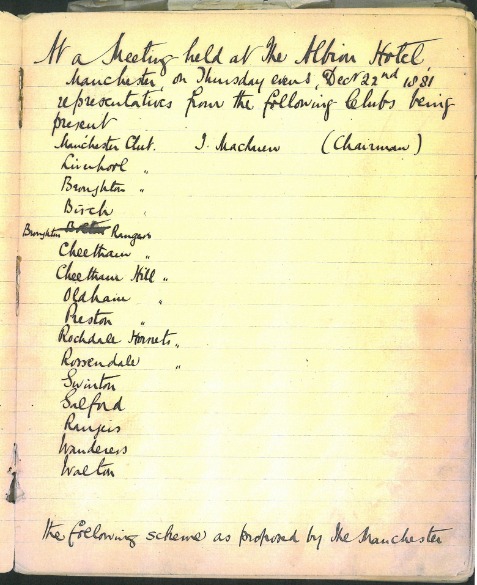 At a Meeting held at The Albion Hotel,
Manchester on Thursday eveng, Decr 22nd 1881
representatives from the following Clubs being
present
Manchester Club. J. MacLaren (Chairman)
Liverpool "
Broughton "
Birch "
Broughton Rangers
Cheetham "
Cheetham Hill "
Oldham "
Preston "
Rochdale Hornets "
Rossendale "
Swinton
Salford
Rangers
Wanderers
Walton
the following scheme as proposed by the Manchester